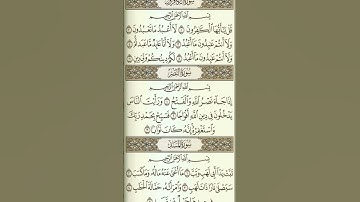 سورة الكافرون
بسم الله الرحمن الرحيم
قل يأيها الكفرون ۝ لا أعبد ما تعبدون ۝
ولا أنتم عبدون ما أعبد ۝ ولا أنا عابد ما عبدتم ۝
ولا أنتم عبدون ما أعبد ۝ لكم دينكم ولي دين ۝
سورة النصر
بسم الله الرحمن الرحيم
إذا جاء نصر الله والفتح ۝ ورأيت الناس
يدخلون في دين الله أفواجا ۝ فسبح بحمد ربك
واستغفره إنه كان توابا ۝
سورة المسد
بسم الله الرحمن الرحيم
تبت يدا أبي لهب وتب ۝ ما أغنى عنه ماله وما كسب ۝
سيصلى نارا ذات لهب ۝ وامرأته حمالة الحطب ۝